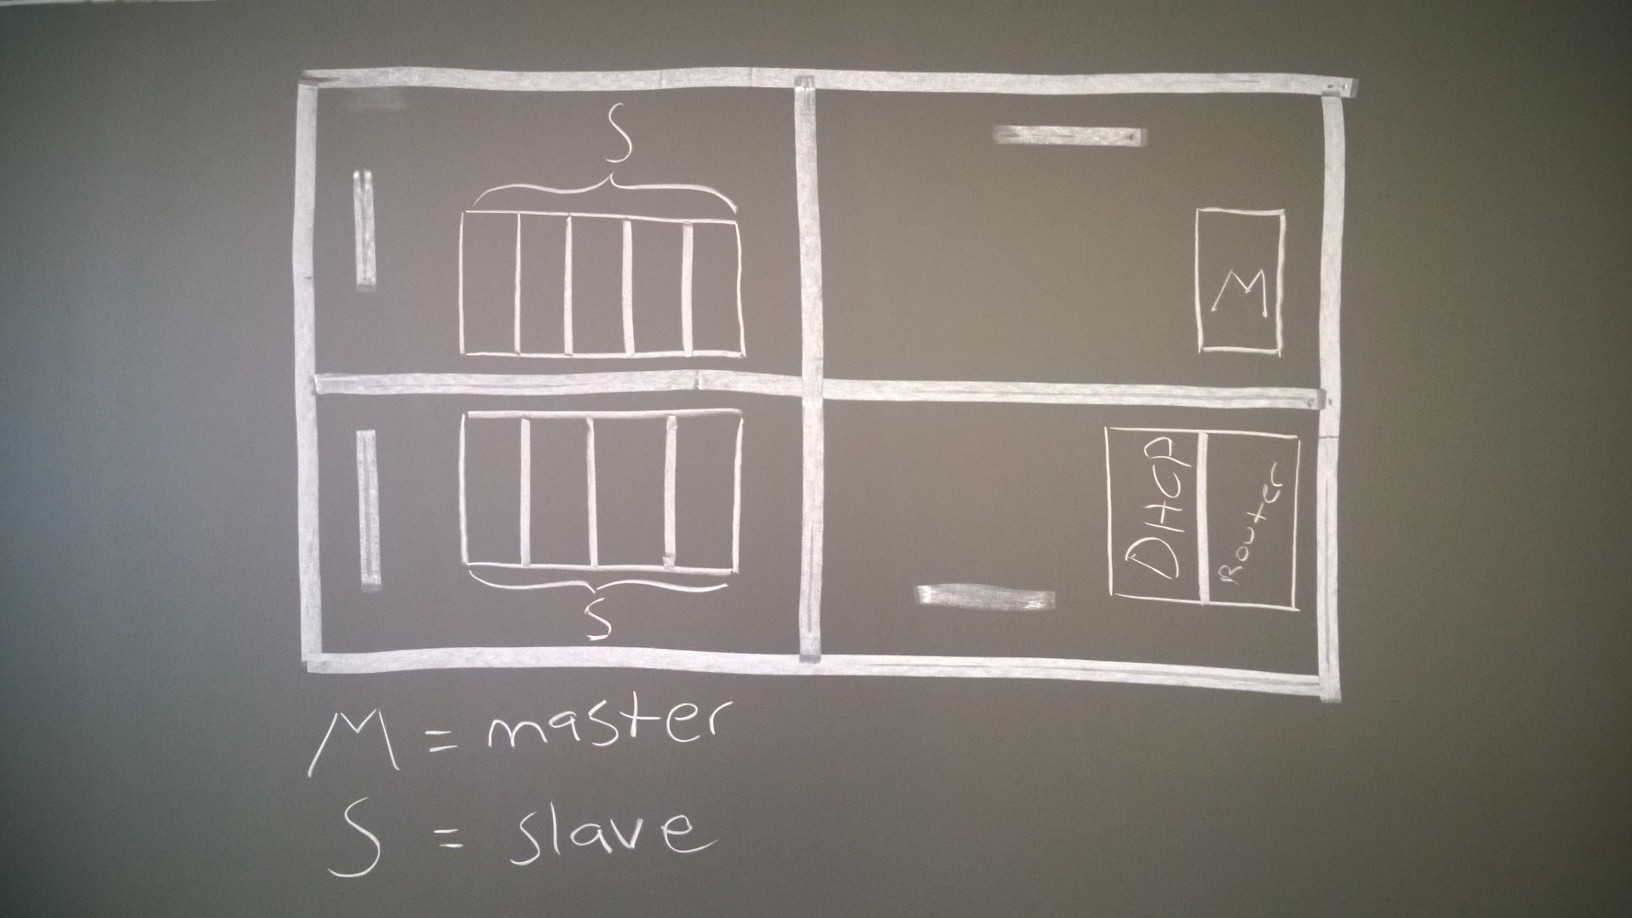 S
M
DHCP
Router
S
M = master
S = slave